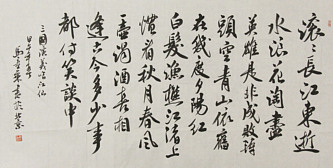 滾滾長江東逝
水浪花淘盡
英雄是非成敗轉
頭空青山依舊
在幾度夕陽紅
白髮漁樵江渚上
慣看秋月春風
一壺濁酒喜相
逢古今多少事
都付笑談中
三國演義 江仙
甲午年